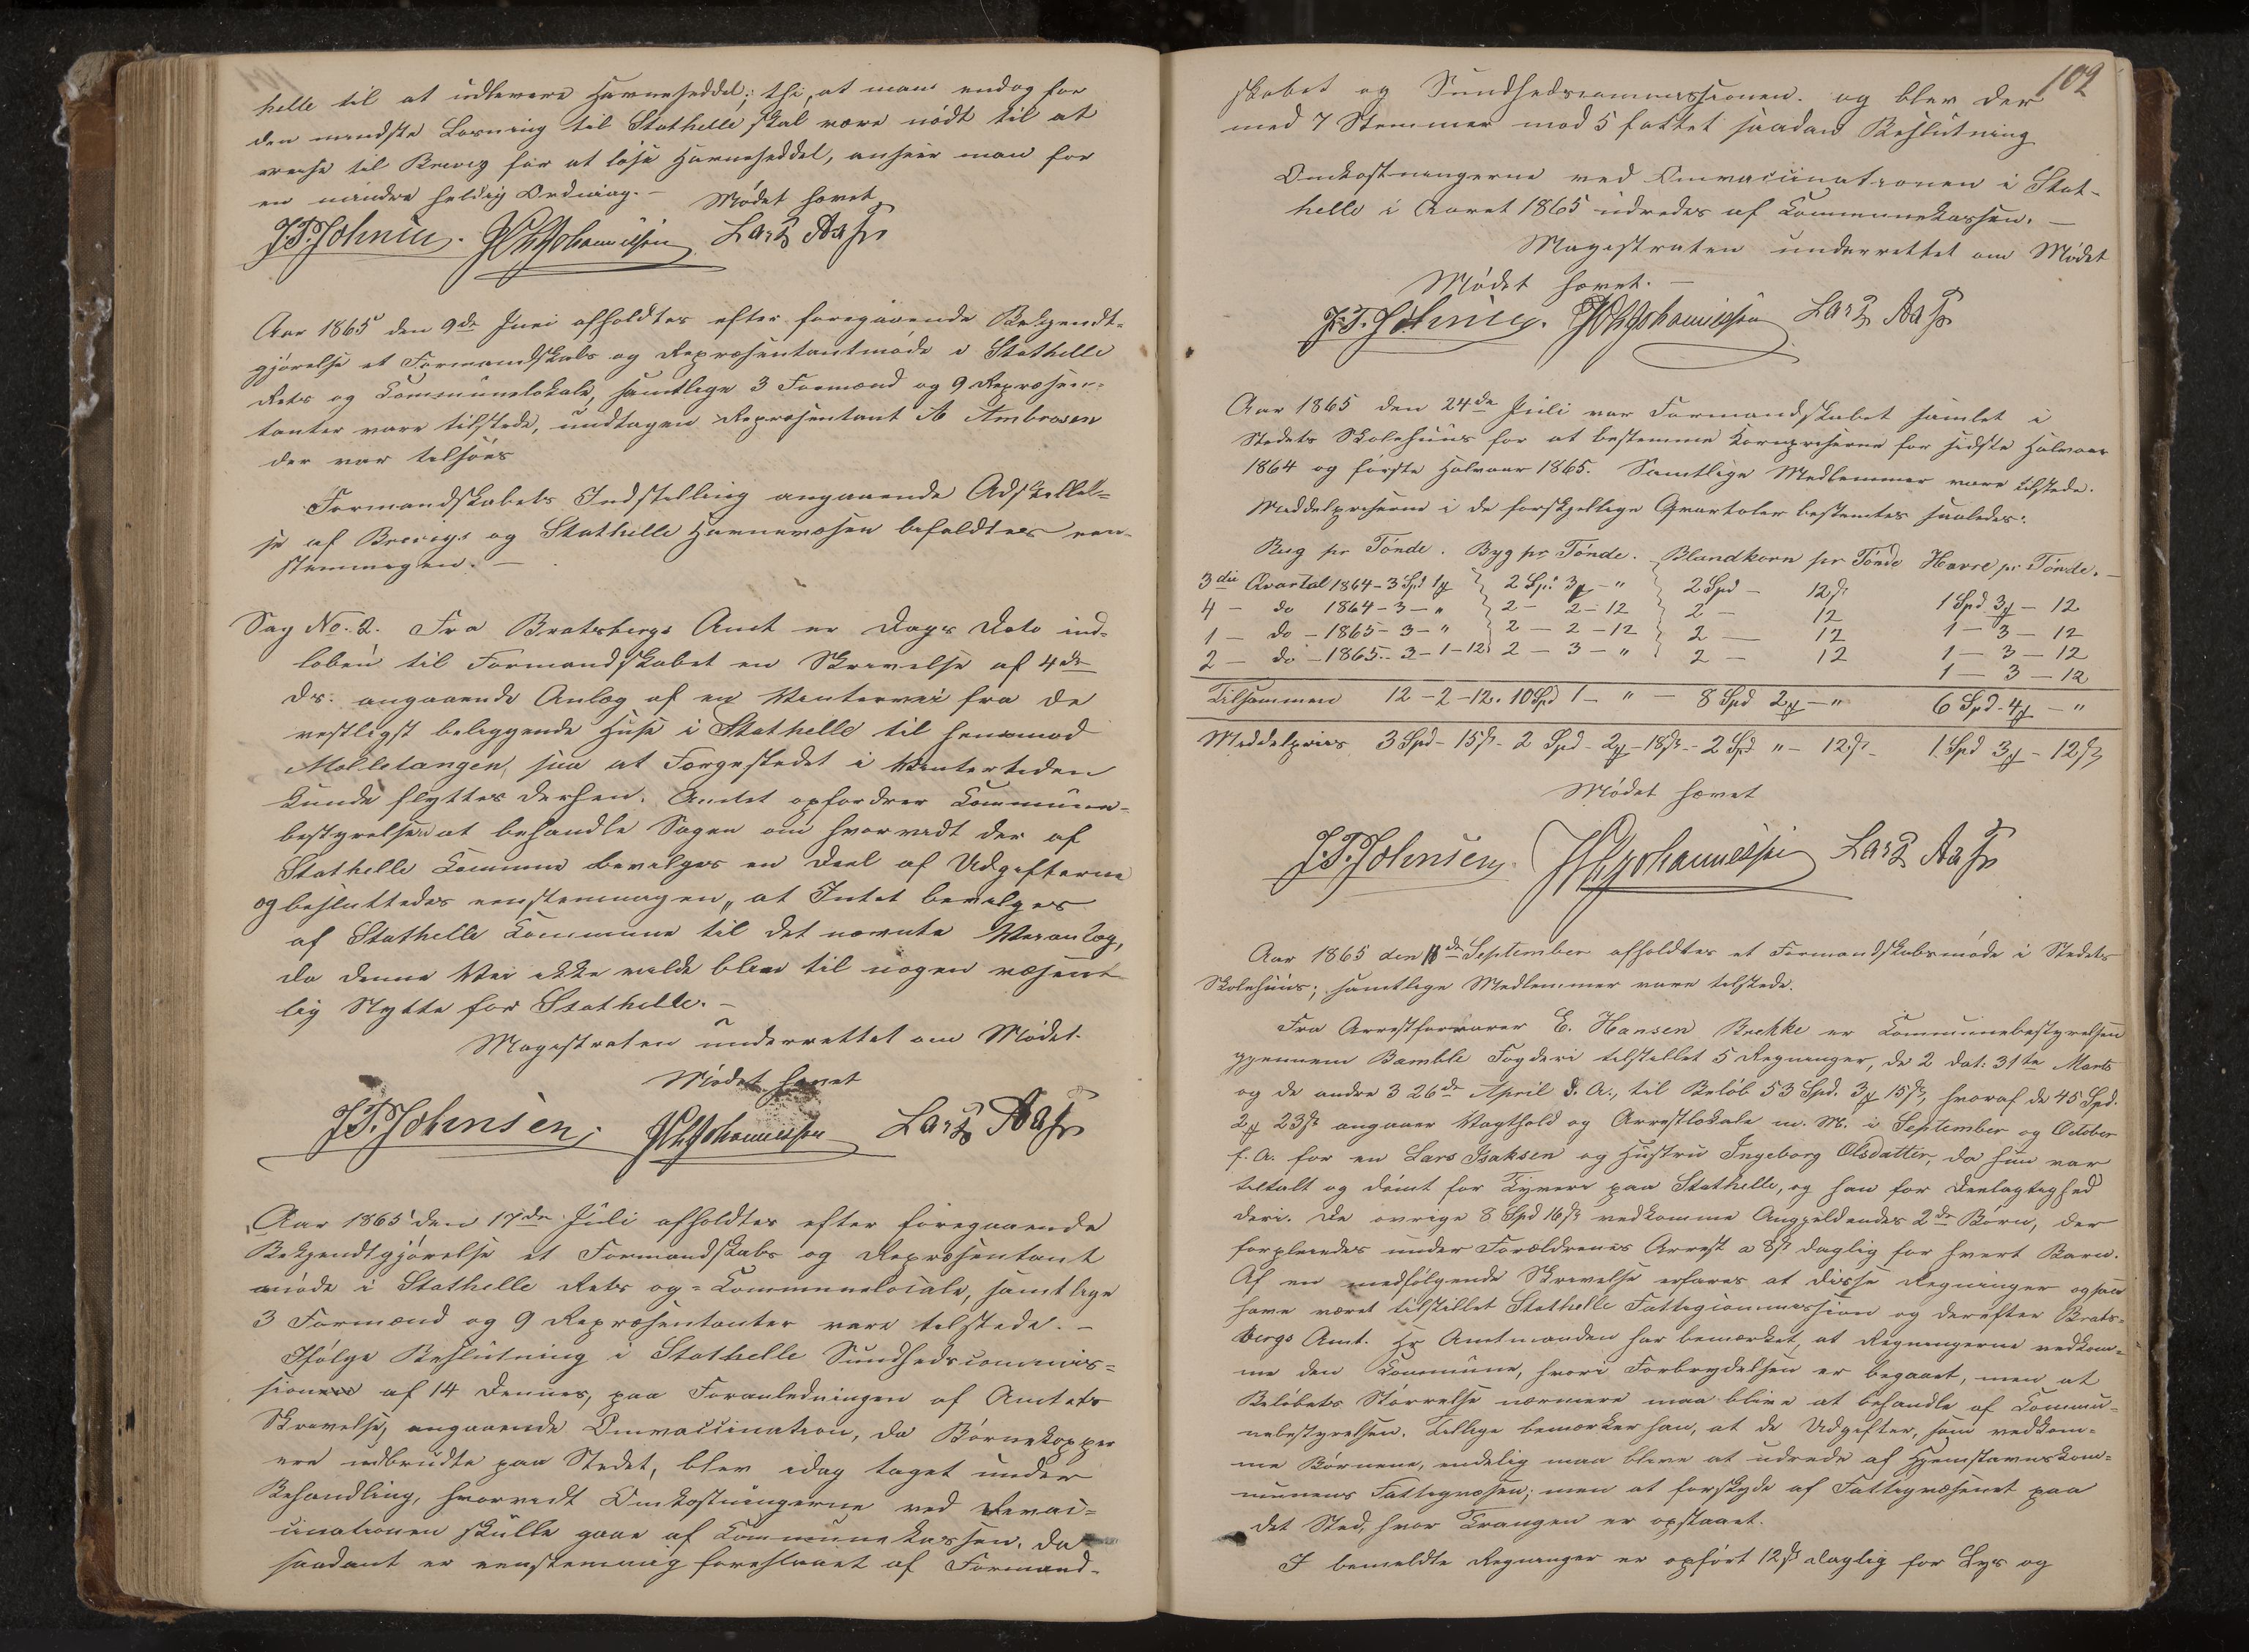 helle til at udlevere Havneseddel; thi, at man endog for
den mindste Losning til Stathelle skal være nødt til at
reise til Brevig for at løse Havneseddel, anseer man for
en mindre heldig Ordning. – Mødet hævet
J.T. Johnsen. Lars Aas
Aar 1865 den 9de Juni afholdtes efter foregaaende Bekjendt-
gjørelse et Formandskabs og Repræsentantmøde i Stathelle
Rets og Communelokale, samtlige 3 Formænd og 9 Repræsen-
tanter vare tilstede, undtagen Repræsentant A Ambrosen
der var tilsøes
Formandskabets Indstilling angaaende Adskillel-
se af Brevigs og Stathelle Havnevæsen befoldtes een-
stemmigen. –
Sag No. 2. Fra Bratsbergs Amt er Dags Dato ind-
løben til Formandskabet en Skrivelse af 4de
ds. angaaende Anlæg af en Vintervei fra de
vestligst beliggende Huse i Stathelle til henimod
Molletangen, saa at Færgestedet i Vintertiden
kunde flyttes derhen. Amtet opfordrer Commune-
bestyrelsen at behandle Sagen om hvorvidt der af
Stathelle Commune bevilges en Deel af Udgifterne
og besluttedes eenstemmigen „at Intet bevilges
af Stathelle Commune til det nævnte Veianlæg,
da denne Vei ikke vilde blive til nogen væsent
lig Nytte for Stathelle. –
Magistraten underrettet om Mødet.
Mødet hævet
J.T. Johnsen, Lars Aas
Aar 1865 den 17de Juli afholdtes efter foregaaende
Bekjendtgjørelse et Formandskabs og Repræsentant
møde i Stathelle Rets og = Communelocale, samtlige
3 Formænd og 9 Repræsentanter vare tilstede. –
Ifølge Beslutning i Stathelle Sundhedscommis-
sionen af 14 dennes, paa Foranledningen af Amtets
Skrivelse, angaaende Omvaccination, da Børnekopper
ere udbrudte paa Stedet, blev idag taget under
Behandling, hvorvidt Omkostningerne ved Revac-
cinationen skulle gaae af Communekassen. Da
saadant er eenstemmig foreslaaet af Formand-
109
skabet og Sundhedscommissionen. og blev der
med 7 Stemmer mod 5 fattet saadan Beslutning
Omkostningerne ved Omvaccinationen i Stat-
helle i Aaret 1865 udredes af Communekassen. –
Magistraten underrettet om Mødet
Mødet hævet. –
J.T. Johnsen. Lars Aas
Aar 1865 den 24de Juli var Formandskabet samlet i
Stedets Skolehuus for at bestemme Kornpriserne for sidste Halvaar
1864 og første Halvaar 1865. Samtlige Medlemmer vare tilstede.
Middelpriserne i de forskjellige Qvartaler bestemtes saaledes:
Rug pr Tønde. Byg pr Tønde. Blandkorn pr Tønde Havre pr Tønde. –
3die Qvartal 1864 – 3 Spd 1 2 Spd 3 – " 2 Spd – 12 1 Spd 3 – 12
4 – do 1864 – 3 – " 2 – 2 – 12 2 – 12 1 – 3 – 12
1 – do – 1865 – 3 – " 2 – 2 – 12 2 – 12 1 – 3 – 12
2 – do – 1865 – 3 – 1 – 12 2 – 3 – " 2 – 12 1 – 3 – 12
Tilsammen 12 – 2 – 12. 10 Spd 1 – " – 8 Spd 2 – " 6 Spd – 4 – "
Middelpriis 3 Spd – 15 – 2 Spd – 2 – 18 – 2 Spd " – 12 – 1 Spd 3 – 12
Mødet hævet
J.T. Johnsen. Lars Aas
Aar 1865 den de September afholdtes et Formandskabsmøde i Stedets
Skolehuus; samtlige Medlemmer vare tilstede.
Fra Arrestforvarer E. Hansen Brekke er Communebestyrelsen
gjennem Bamble Fogderi tilstillet 5 Regninger, de 2 dat: 31te Marts
og de andre 3 26de April d. A., til Beløb 53 Spd. 3 15, hvoraf de 45 Spd.
2 23 angaaer Vagthold og Arrestlokale m. M. i September og October
f. A. for en Lars Isaksen og Hustru Ingeborg Olsdatter, da hun var
tiltalt og dømt for Tyveri paa Stathelle, og han for Deelagtighed
deri. De øvrige 8 Spd 16 vedkomme Angjeldendes 2de Børn, der
forpleiedes under Forældrenes Arrest a 8 daglig for hvert Barn.
Af en medfølgende Skrivelse erfares at disse Regninger ogsaa
have været tilstillet Stathelle Fattigcommission og derefter Brats-
bergs Amt. Hr Amtmanden har bemærket, at Regningerne vedkom-
me den Commune, hvori Forbrydelsen er begaaet, men at
Beløbets Størrelse nærmere maa blive at behandle af Commu-
nebestyrelsen. Tillige bemærker han, at de Udgifter, som vedkom-
me Børnene, endelig maa blive at udrede af Hjemstavnskom-
munens Fattigvæsen; men at forskyde af Fattigvæsenet paa
det Sted, hvor Trangen er opstaaet.
I bemeldte Regninger er opført 12 daglig for Lys og